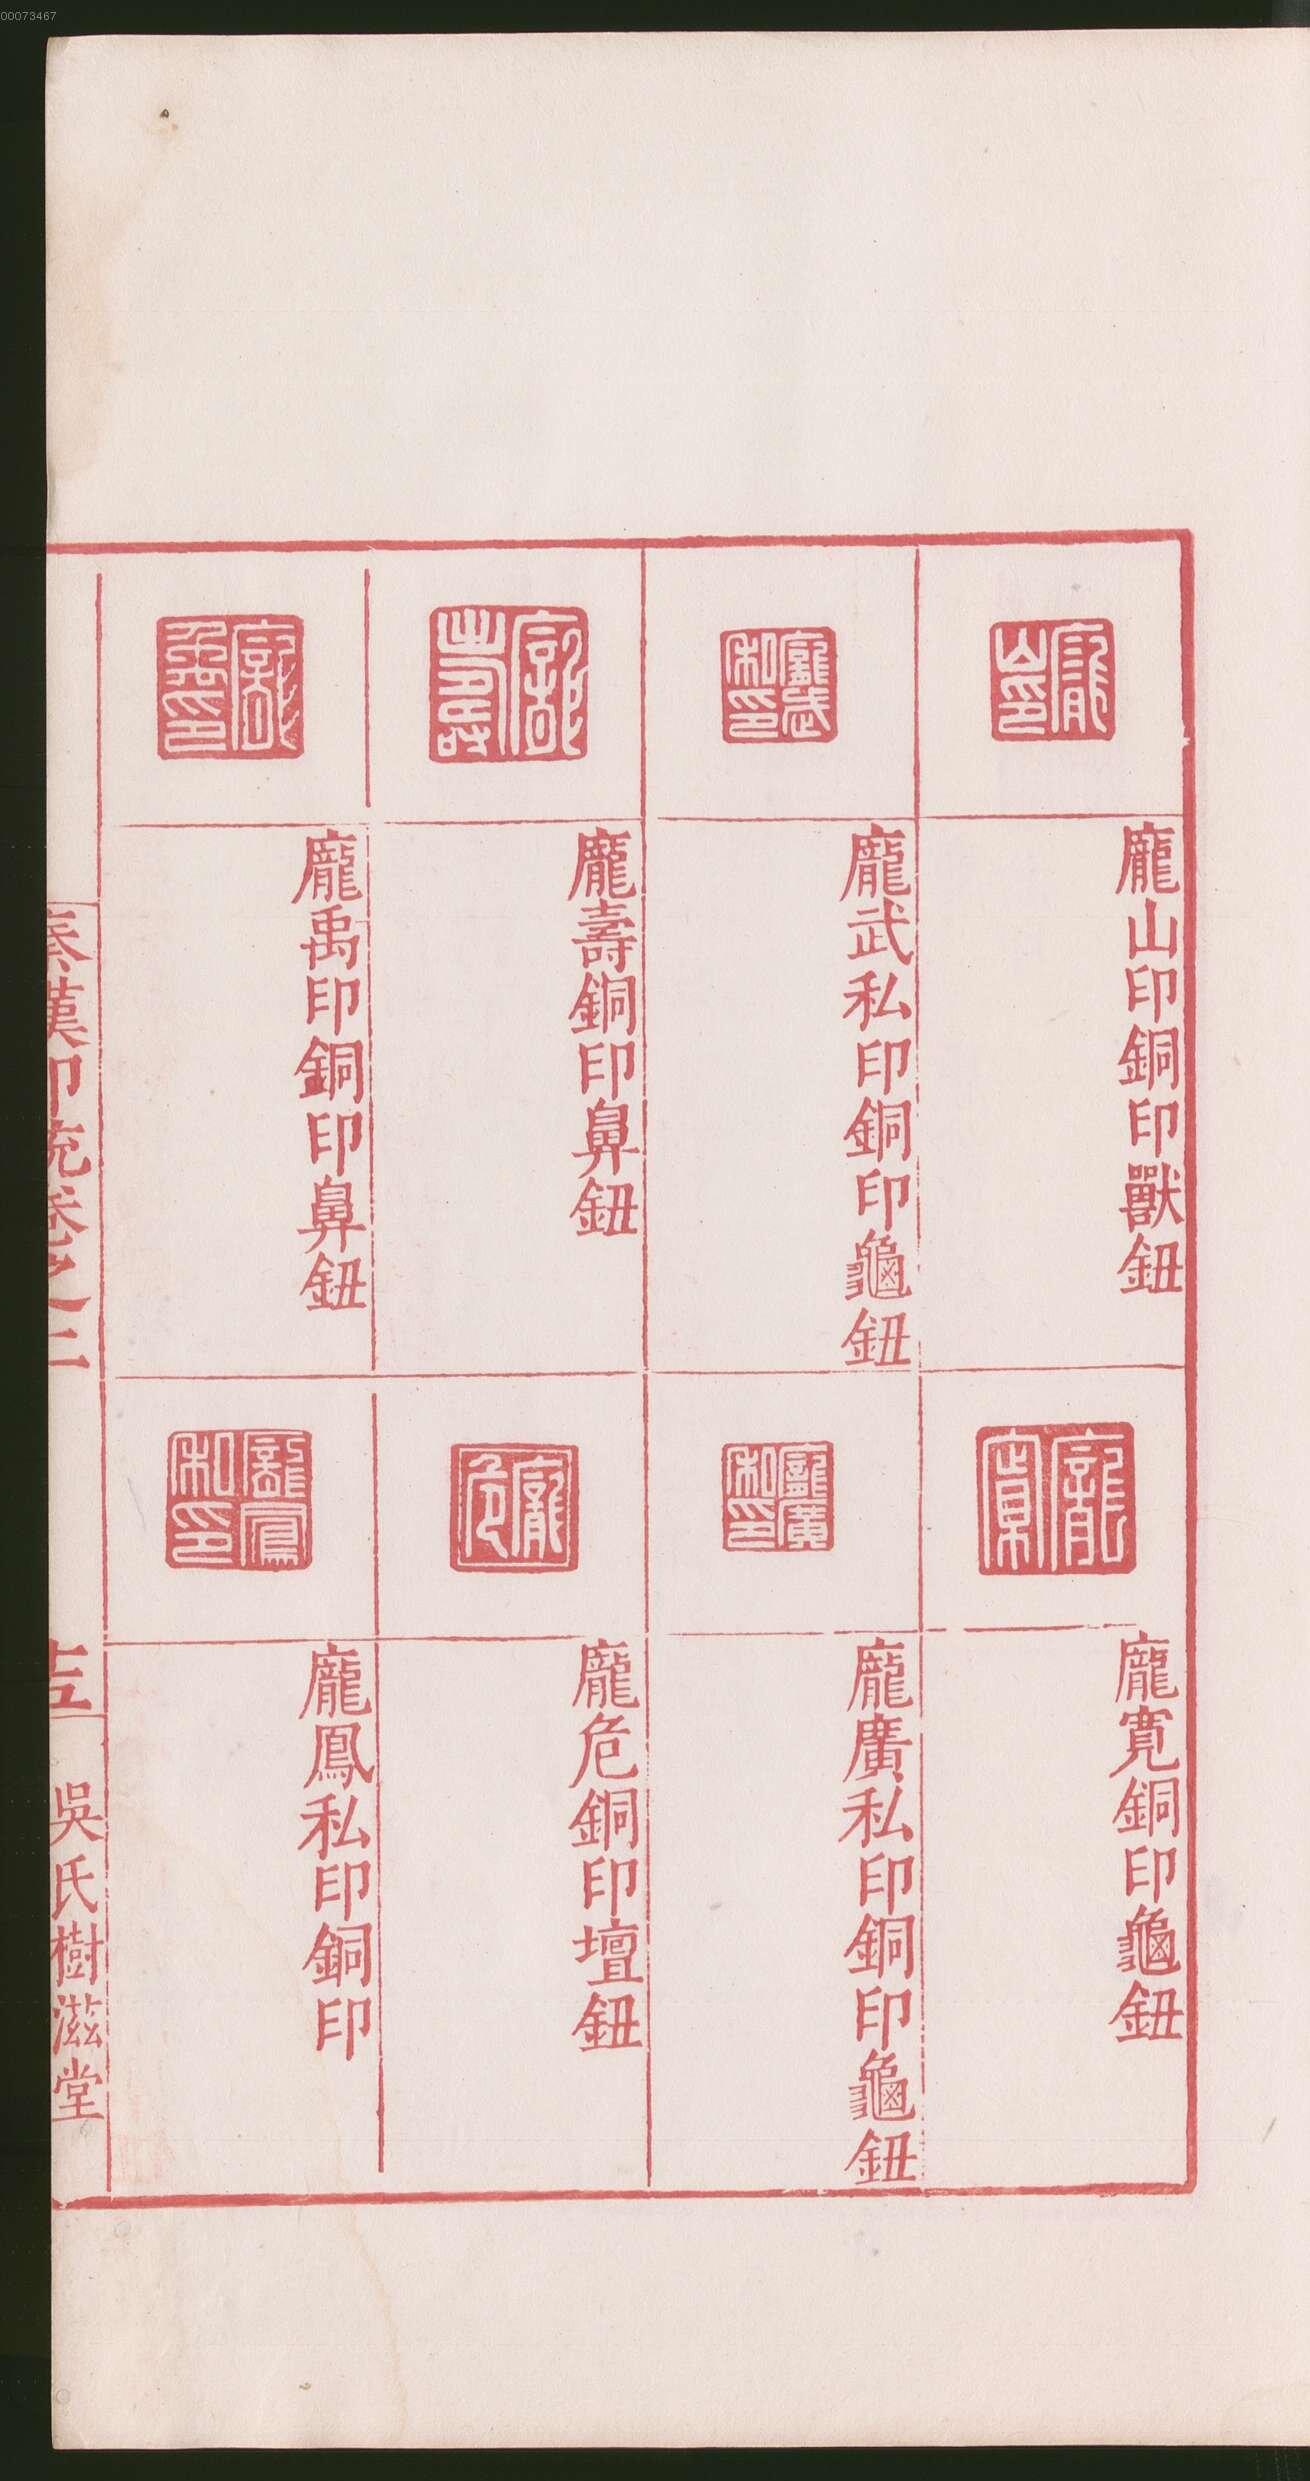 00073467
龐山印銅印獸鈕
龐武私印銅印龜鈕
龐壽銅印鼻鈕
龐禹印銅印鼻鈕
龐寬銅印龜鈕
龐廣私印銅印龜鈕
龐危銅印壇鈕
龐鳳私印銅印
秦漢印統卷之二
十五
吳氏樹滋堂